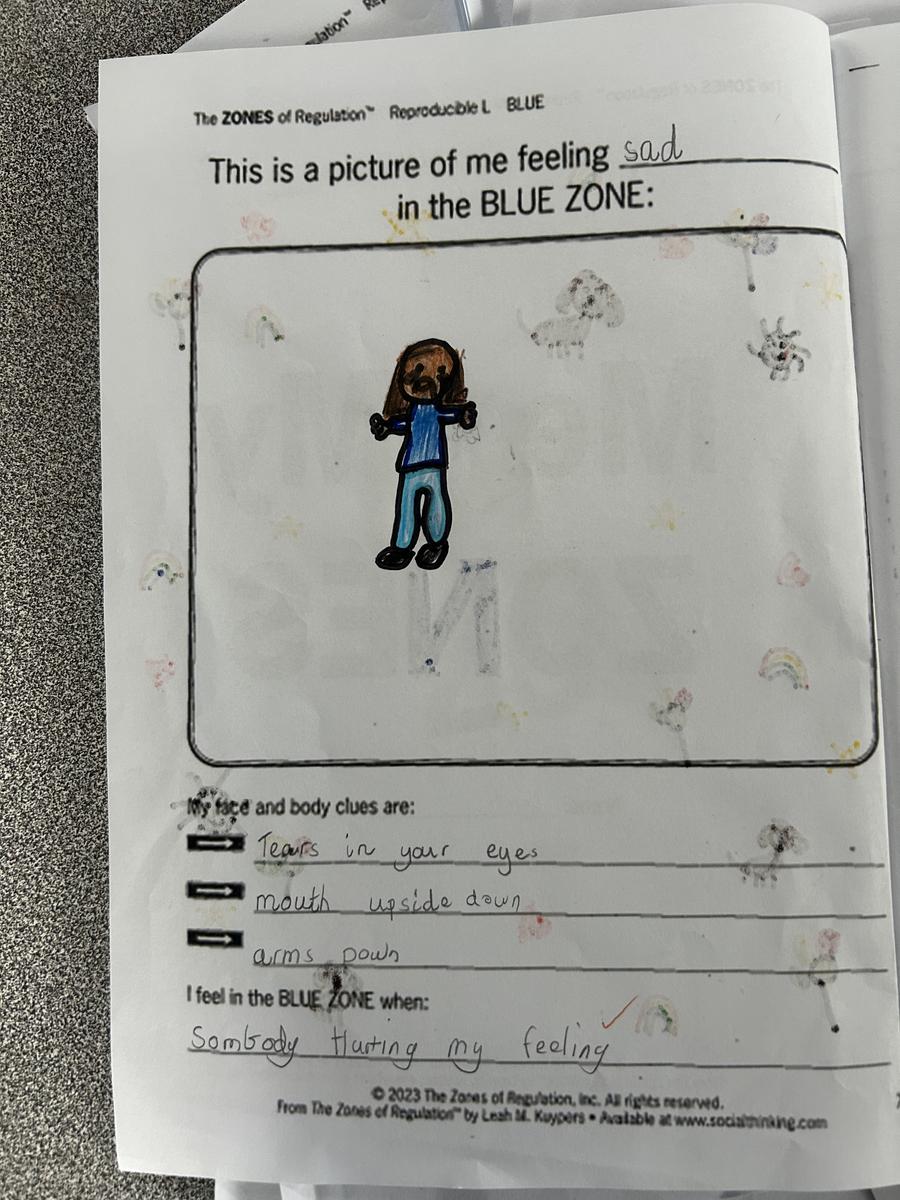 The ZONES of Regulation™ Reproducible L BLUE
This is a picture of me feeling sad
in the BLUE ZONE:
My face and body clues are:
Tears in your eyes
mouth upside down
arms pown
I feel in the BLUE ZONE when:
Sombody Hurting my feeling
© 2023 The Zones of Regulation, Inc. All rights reserved.
From The Zones of Regulation™ by Leah M. Kuypers • Available at www.socialthinking.com